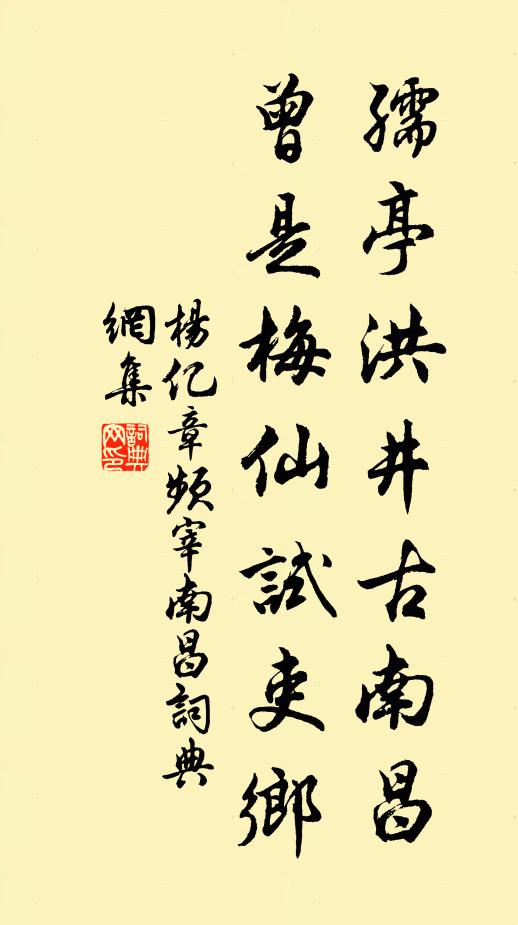 孺亭洪井古南昌
曾是梅仙試吏鄉
楊亿章頻宰南昌詞典
網集
詞典
网印